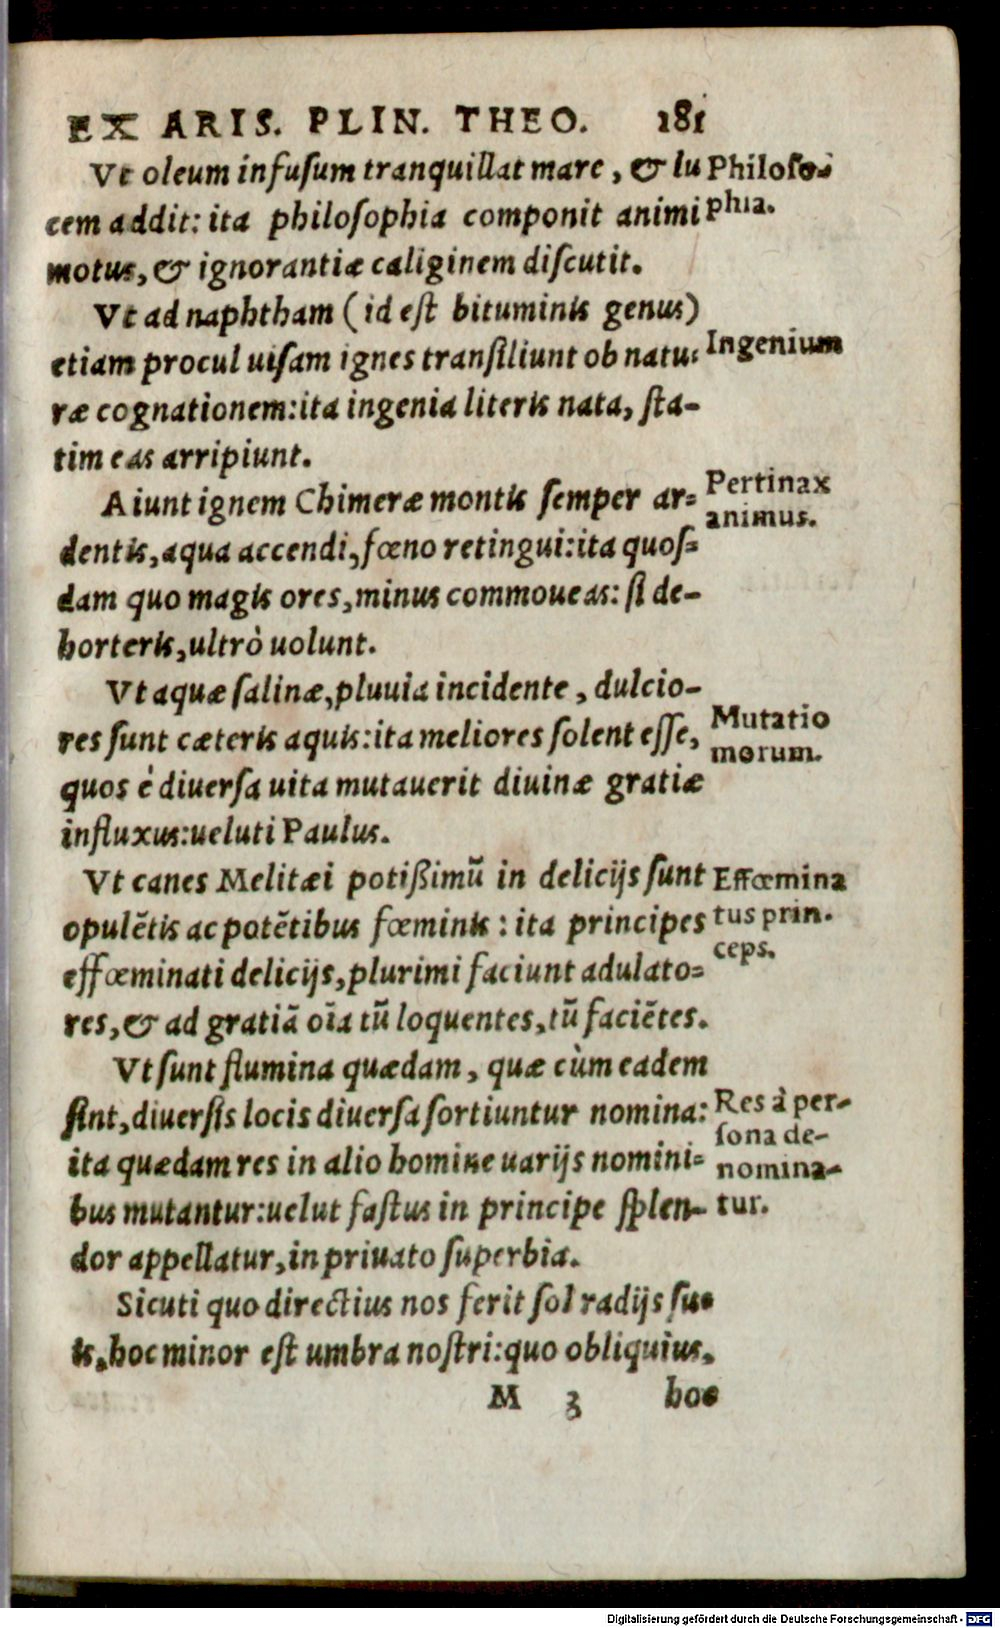 EX ARIS. PLIN. THEO. 181
Vt oleum infuſum tranquillat mare, & lu
cem addit: ita philoſophia componit animi
motus, & ignorantiæ caliginem diſcutit.
Philoſo-
phia.
Vt ad naphtham (id eſt bituminis genus)
etiam procul uiſam ignes tranſiliunt ob natu-
ræ cognationem: ita ingenia literis nata, ſta-
tim eas arripiunt.
Ingenium
Aiunt ignem Chimeræ montis ſemper ar-
dentis, aqua accendi, fœno retingui: ita quoſ-
dam quo magis ores, minus commoueas: ſi de-
horteris, ultrò uolunt.
Pertinax
animus.
Vt aquæ ſalinæ, pluuia incidente, dulcio-
res ſunt cæteris aquis: ita meliores ſolent eſſe,
quos è diuerſa uita mutauerit diuinæ gratiæ
influxus: ueluti Paulus.
Mutatio
morum.
Vt canes Melitæi potißimũ in delicijs ſunt
opulẽtis ac potẽtibus fœminis: ita principes
effœminati delicijs, plurimi faciunt adulato-
res, & ad gratiã oĩa tũ loquentes, tũ faciẽtes.
Effœmina
tus prin.
ceps.
Vt ſunt flumina quædam, quæ cùm eadem
ſint, diuerſis locis diuerſa ſortiuntur nomina:
ita quædam res in alio homine uarijs nomini-
bus mutantur: uelut faſtus in principe ſplen-
dor appellatur, in priuato ſuperbia.
Res à per-
ſona de-
nomina-
tur.
Sicuti quo directius nos ferit ſol radijs ſu-
is, hoc minor eſt umbra noſtri: quo obliquius,
M 3 hoc
Digitalisierung gefördert durch die Deutsche Forschungsgemeinschaft - DFG